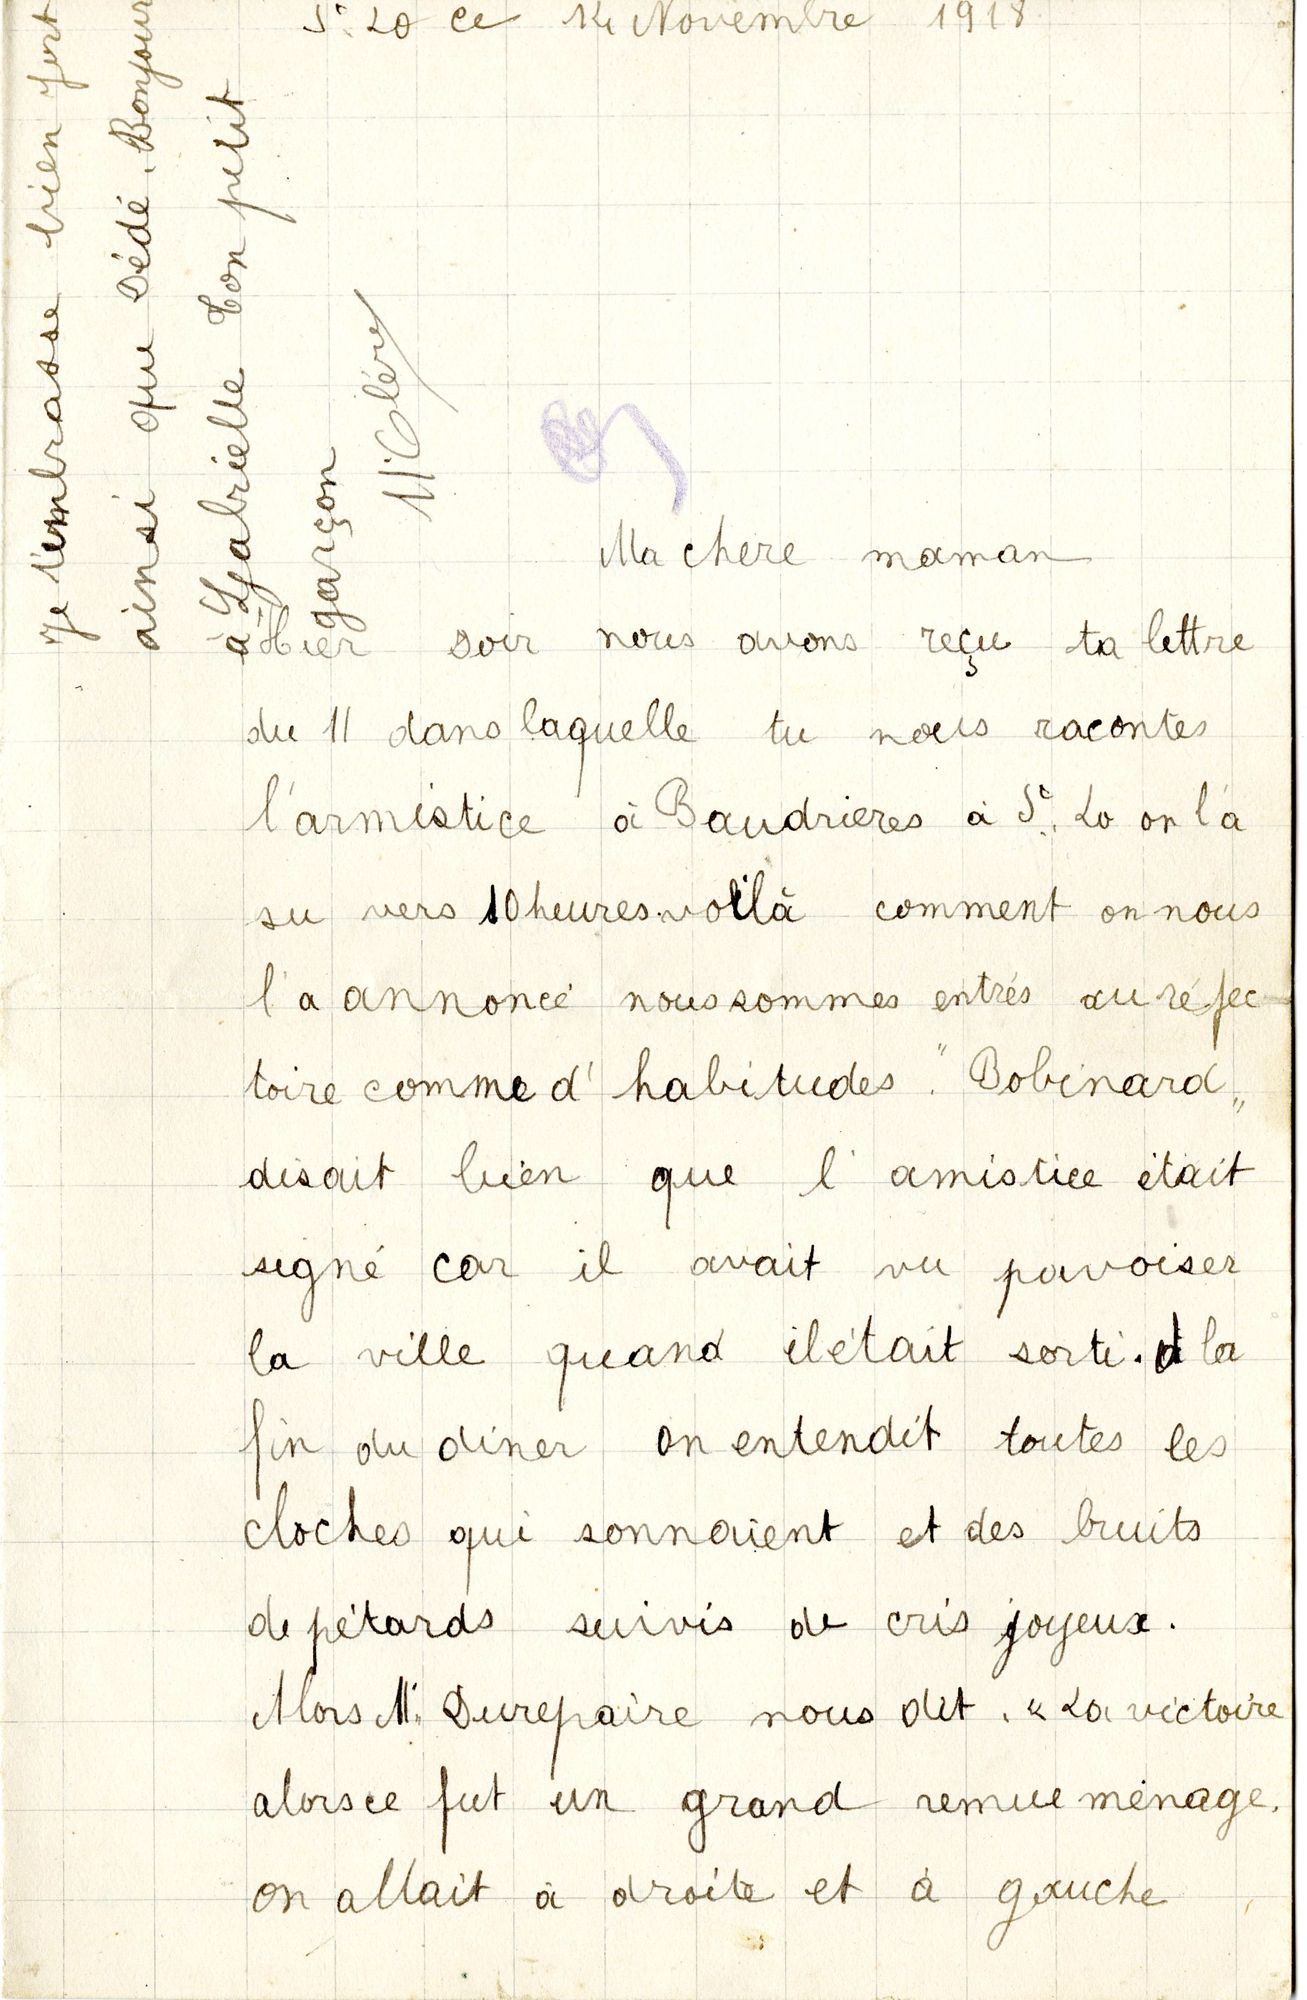 St. Lo ce 14 Novembre 1918
Ma chere maman
Hier soir nous avons reçu ta lettre
du 11 dans laquelle tu nous racontes
l'armistice à Baudrieres à St. Lo on l'a
su vers 10 heures. voilà comment on nous
l'a annoncé nous sommes entrés au réfec-
toire comme d'habitudes "Bobinard"
disait bien que l'amistice était
signé car il avait vu pavoiser
la ville quand il était sorti. A la
fin du diner on entendit toutes les
cloches qui sonnaient et des bruits
de pétards suivis de cris joyeux.
Alors M. Durepaire nous dit. « La victoire
alors ce fut un grand remue ménage.
on allait à droite et à gauche
Je t'embrasse bien fort
ainsi que Dédé. Bonjour
à Gabrielle Ton petit
garçon